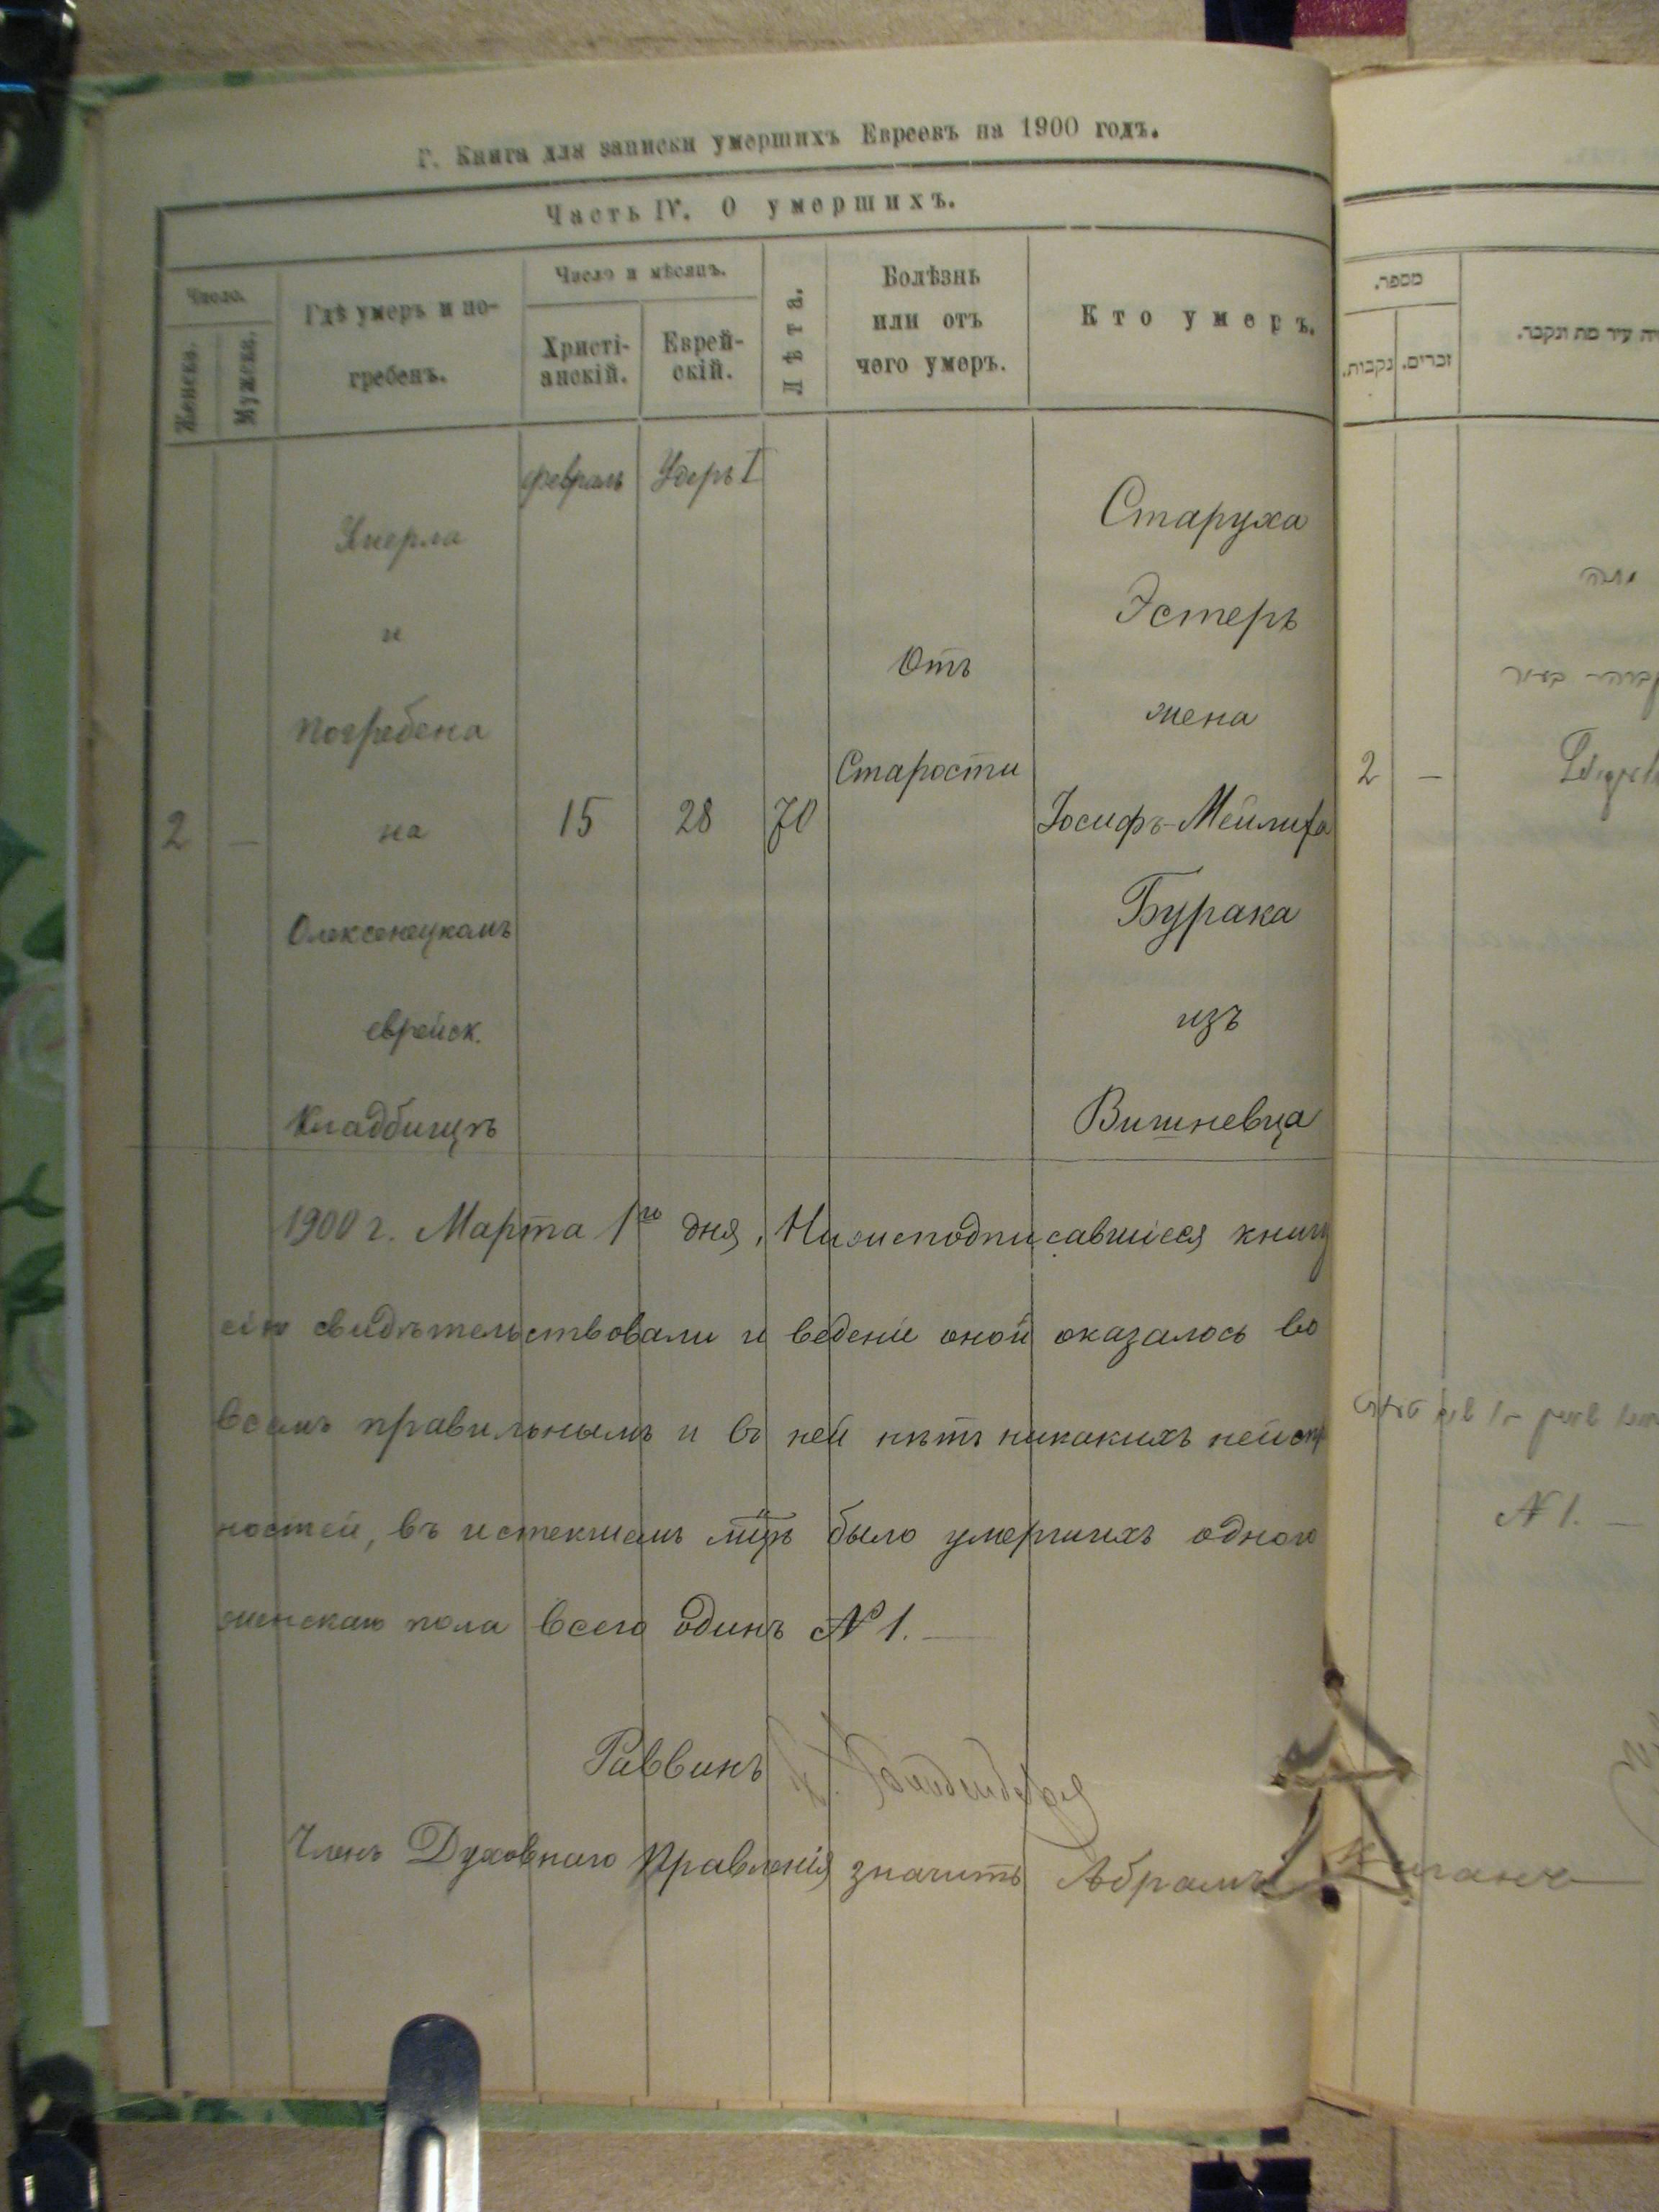 Г. Книга для записки умершихъ Евреевъ на 1900 годъ.
Часть IV. О умершихъ.
Число.
Женска.
Мужеска.
Гдѣ умеръ и по-
гребенъ.
Число и мѣсяцъ.
Христі-
анскій.
Еврей-
скій.
Лѣта.
Болѣзнь
или отъ
чего умеръ.
Кто умеръ.
2
—
Умерла
и
погребена
на
Олексенецкомъ
еврейск.
Кладбищѣ
февраль
15
Адеръ I
28
70
Отъ
Старости
Старуха
Эстеръ
жена
Іосифъ-Мейлиха
Бурака
изъ
Вишневца
1900 г. Марта 1го дня, Нижеподписавшіеся книгу
сію свидѣтельствовали и веденіе оной оказалось во
всемъ правильнымъ и въ ней нѣтъ никакихъ
ностей, въ истекшемъ было умершихъ одного
женскаго пола всего одинъ № 1. —
Раввинъ
Членъ Духовнаго Правленія значитъ Абрамъ
מספר.
נקבות.
זכרים.
עיר מת ונקבר.
2
—
№ 1. —